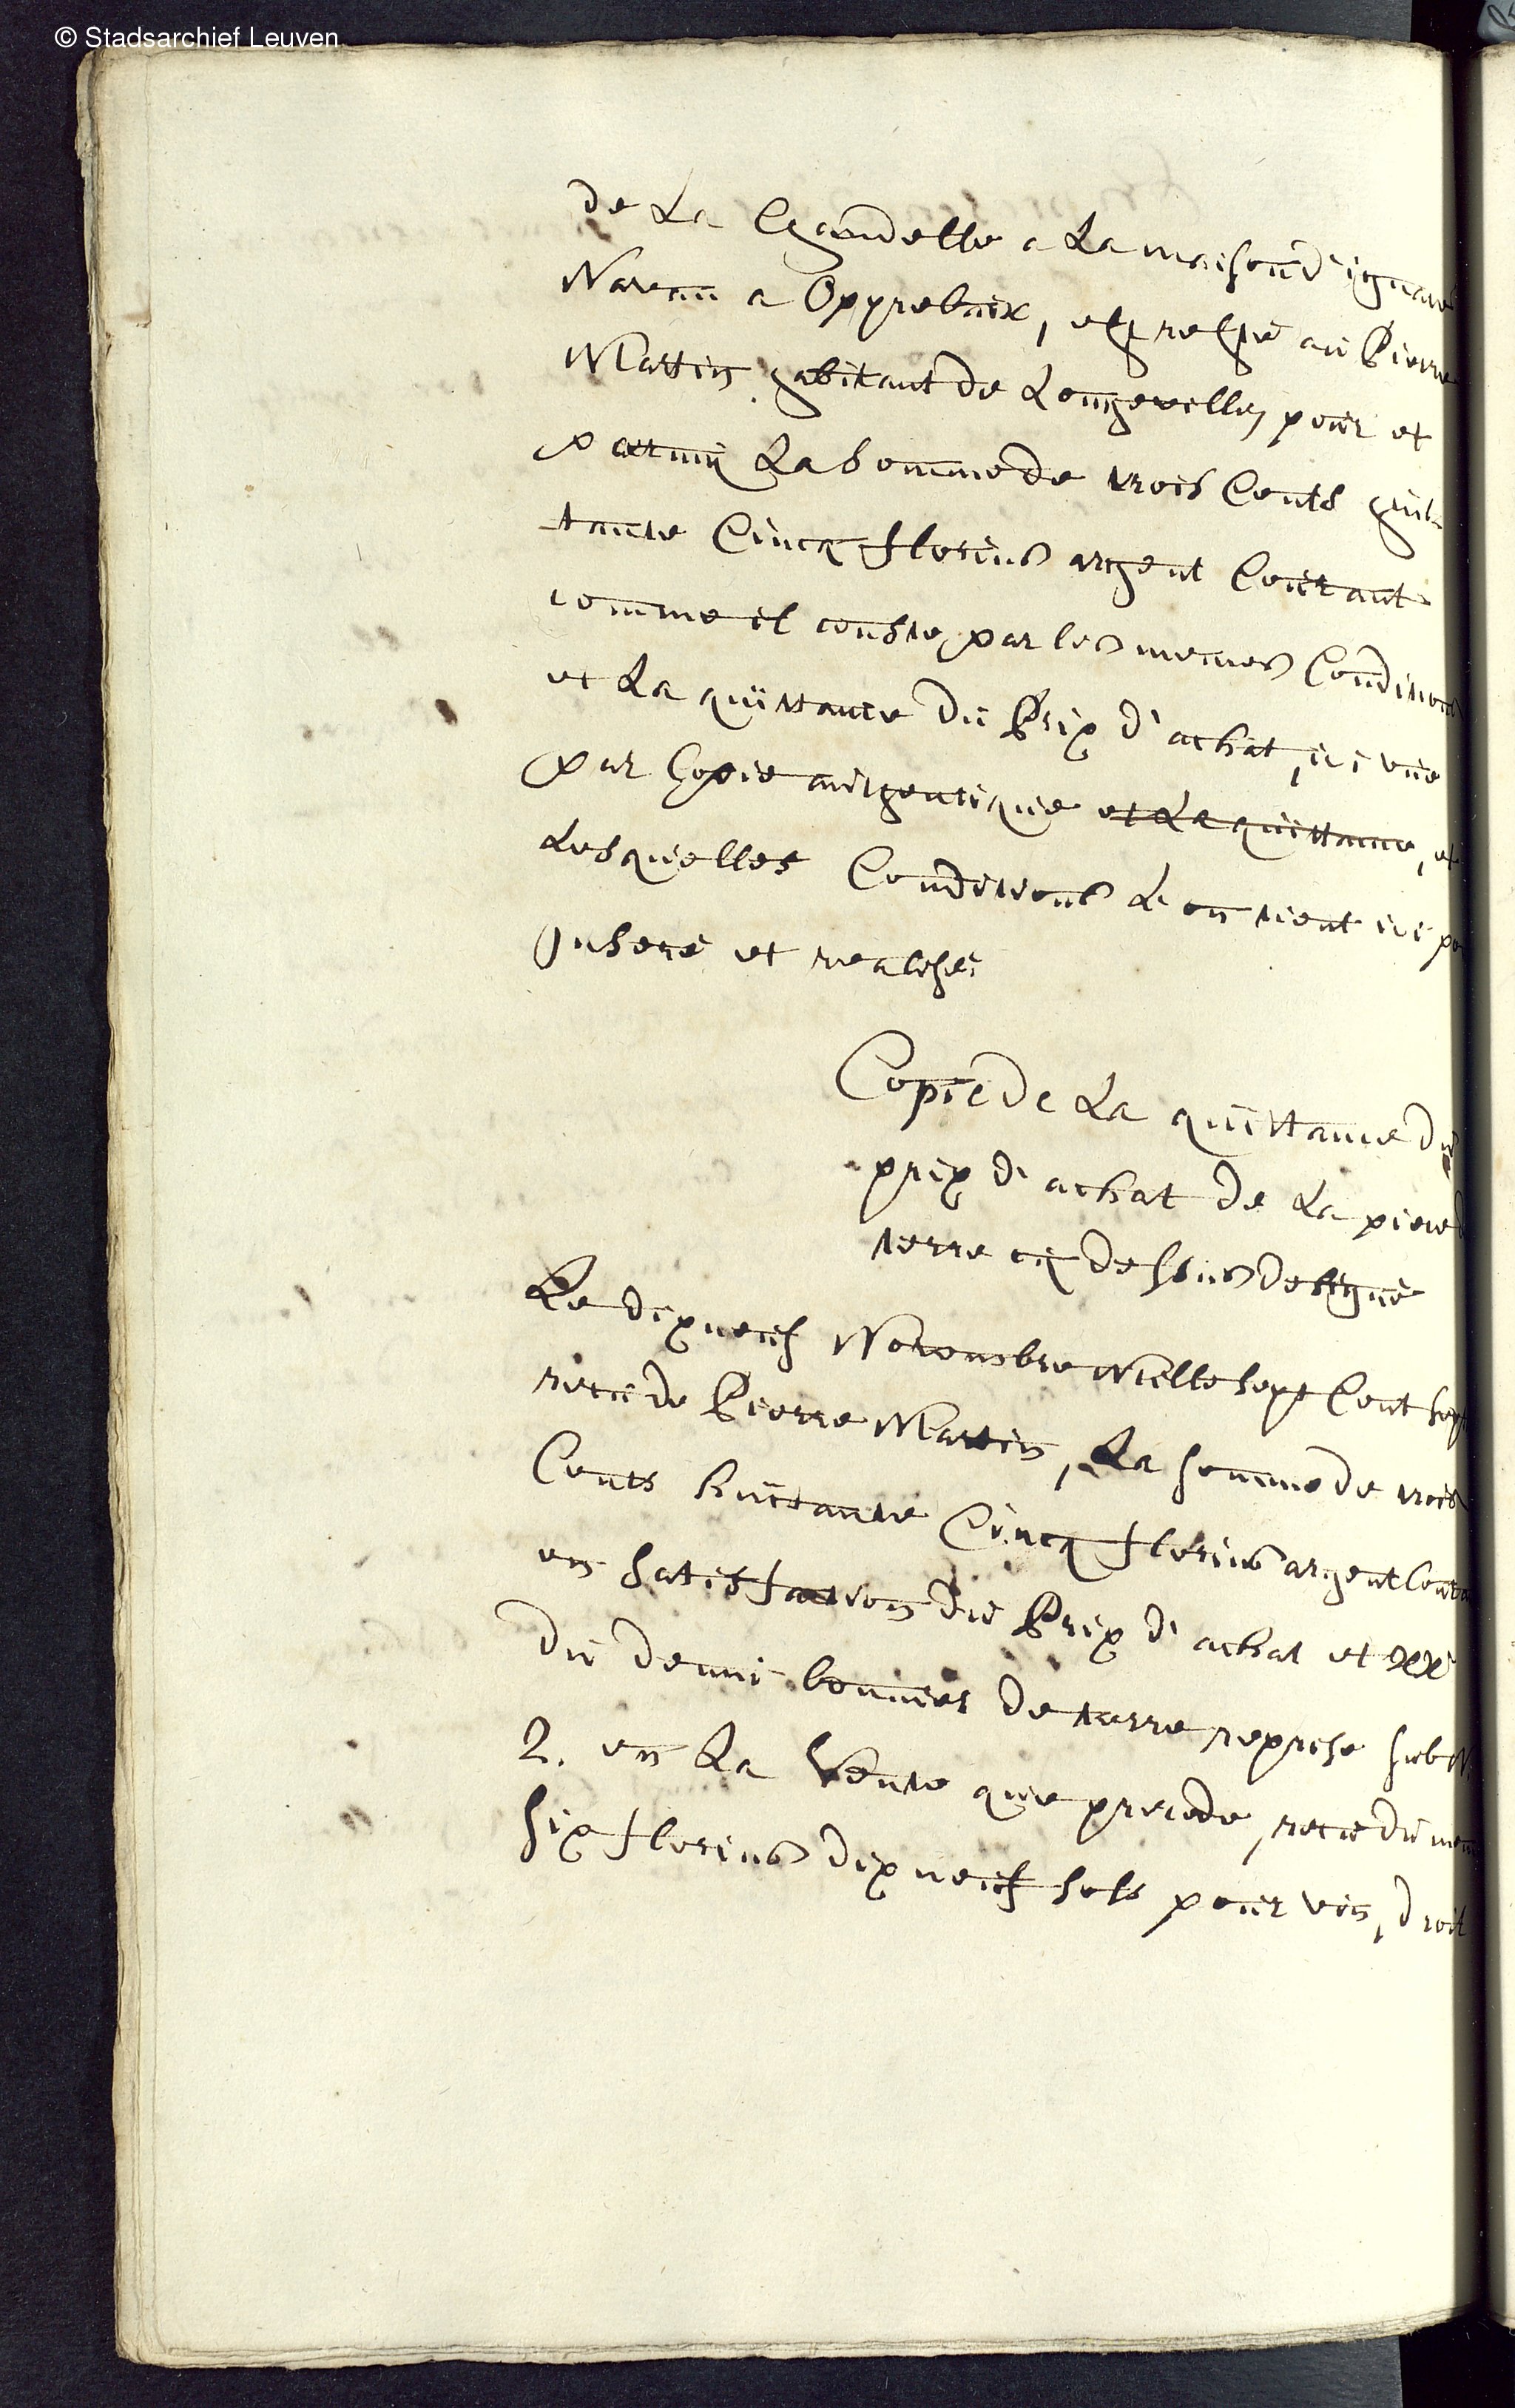 © Stadsarchief Leuven
de La Chandelle a La maison d'ignace
Nareau a Opprebaix, est resté au Pierre
Mattin habitant de Longeville, pour et
parmij La Somme de trois Cents huit
tante Cincq florins argent Courant
comme il conste par les memes Conditions
et La quittance du Prix d'achat, ici vue
par Copie authentique et La quittance, et
Lesquelles Conditions L'on tient ici po
Inseré et realisé
Copie de La quittance du
prix d'achat de La piece d
terre cij dessus designé
Le dixneuf Novembre Mille sept Cent sep
receu de Pierre Martin, La somme de trois
Cents huitante Cincq florins argent Coura
en satisfaction du Prix d'achat et
du demi bonnier de terre reprise sub N
2. en La Vente que precede, receu du mem
six florins dixneuf sols pour vin, droit